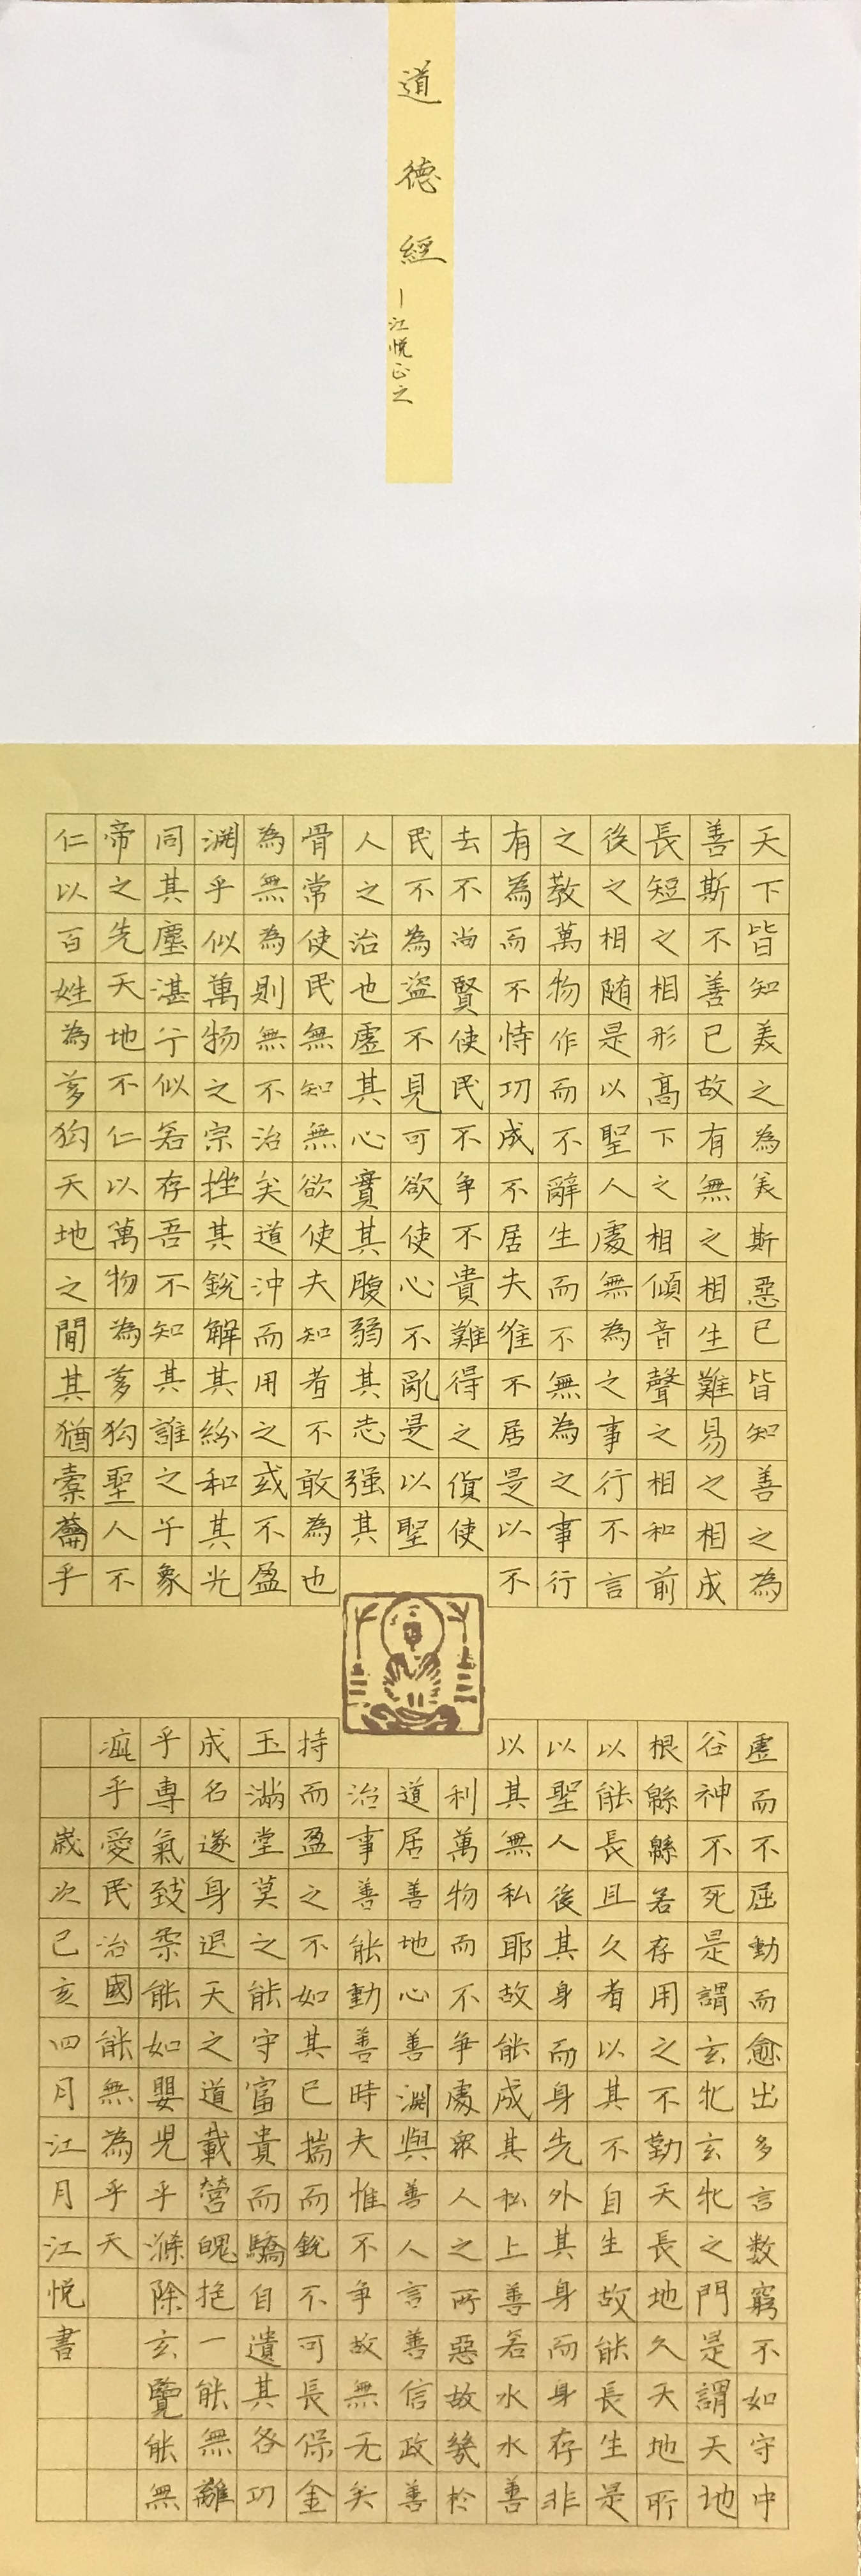 道德經
江悅正之
天下皆知美之為美斯惡已皆知善之為
善斯不善已故有無之相生難易之相成
長短之相形高下之相傾音聲之相和前
後之相随是以聖人處無為之事行不言
之教萬物作而不辭生而不無為之事行
有為而不恃功成不居夫惟不居是以不
去不尚賢使民不爭不貴難得之貨使
民不為盜不見可欲使心不亂是以聖
人之治也虛其心實其腹弱其志强其
骨常使民無知無欲使夫知者不敢為也
為無為則無不治矣道沖而用之或不盈
淵乎似萬物之宗挫其銳解其紛和其光
同其塵湛兮似若存吾不知其誰之子象
帝之先天地不仁以萬物為芻狗聖人不
仁以百姓為芻狗天地之間其猶橐籥乎
虛而不屈動而愈出多言数窮不如守中
谷神不死是謂玄牝玄牝之門是謂天地
根緜緜若存用之不勤天長地久天地所
以能長且久者以其不自生故能長生是
以聖人後其身而身先外其身而身存非
以其無私耶故能成其私上善若水水善
利萬物而不爭處衆人之所惡故幾於
道居善地心善淵與善人言善信政善
治事善能動善時夫惟不爭故無无矣
持而盈之不如其已揣而銳不可長保金
玉滿堂莫之能守富貴而驕自遺其各功
成名遂身退天之道載營魄抱一能無離
乎專氣致柔能如嬰兒乎滌除玄覽能無
疵乎愛民治國能無為乎乎天
歲次己亥四月江月江悅書